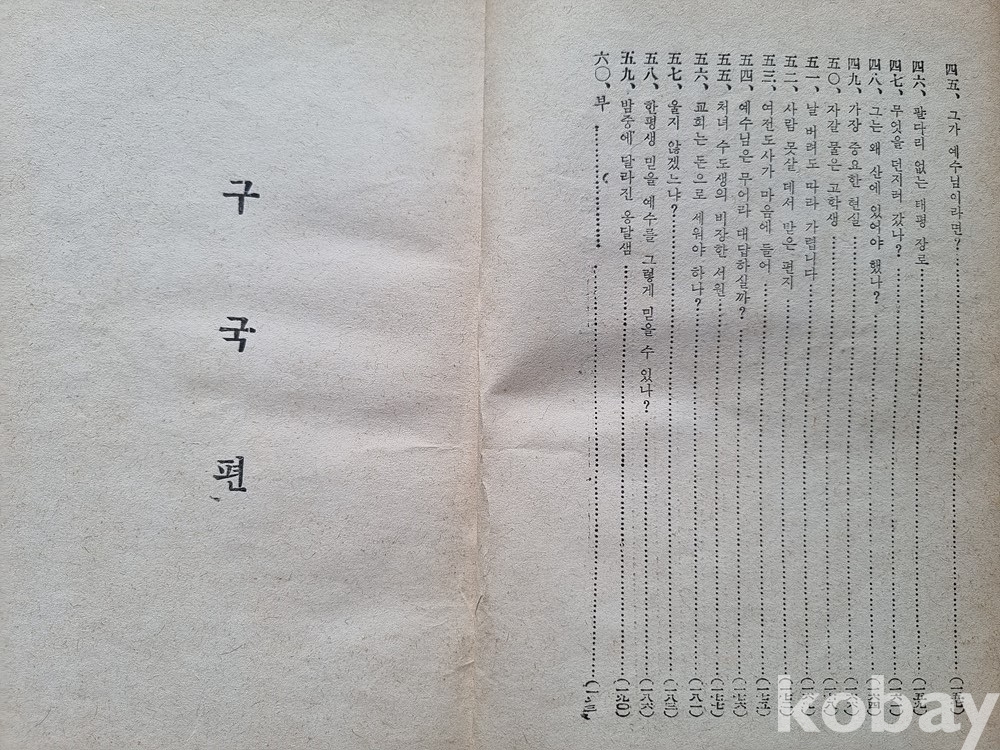 四五、그가 예수님이라면?
四六、팔다리 없는 태평 장로
四七、무엇을 던지러 갔나?
四八、그는 왜 산에 있어야 했나?
四九、가장 중요한 현실
五〇、자갈 물은 고학생
五一、날 버려도 따라 가렵니다
五二、사람 못살 데서 받은 편지
五三、여전도사가 마음에 들어
五四、예수님은 무어라 대답하실까?
五五、처녀 수도생의 비장한 서원
五六、교회는 돈으로 세워야 하나?
五七、울지 않겠느냐?
五八、한평생 믿을 예수를 그렇게 믿을 수 있나? (一八六)
五九、밤중에 달라진 옹달샘 (一九〇)
六〇、부
구국편
kobay